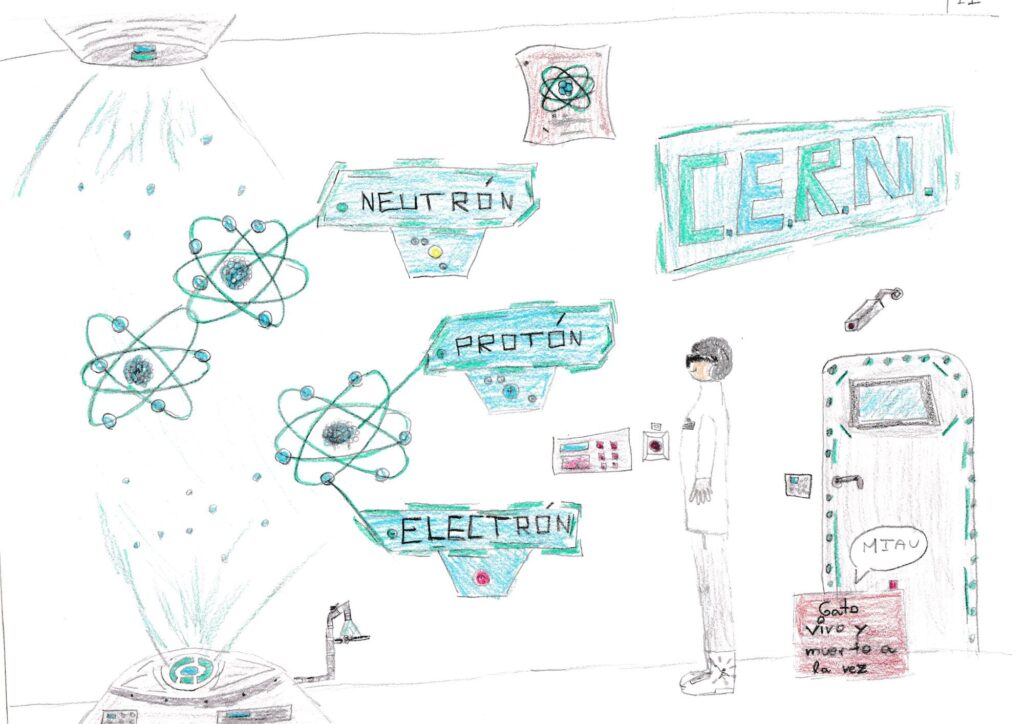 NEUTRÓN
C.E.R.N.
PROTÓN
ELECTRÓN
MIAU
Gato
vivo y
muerto a
la vez